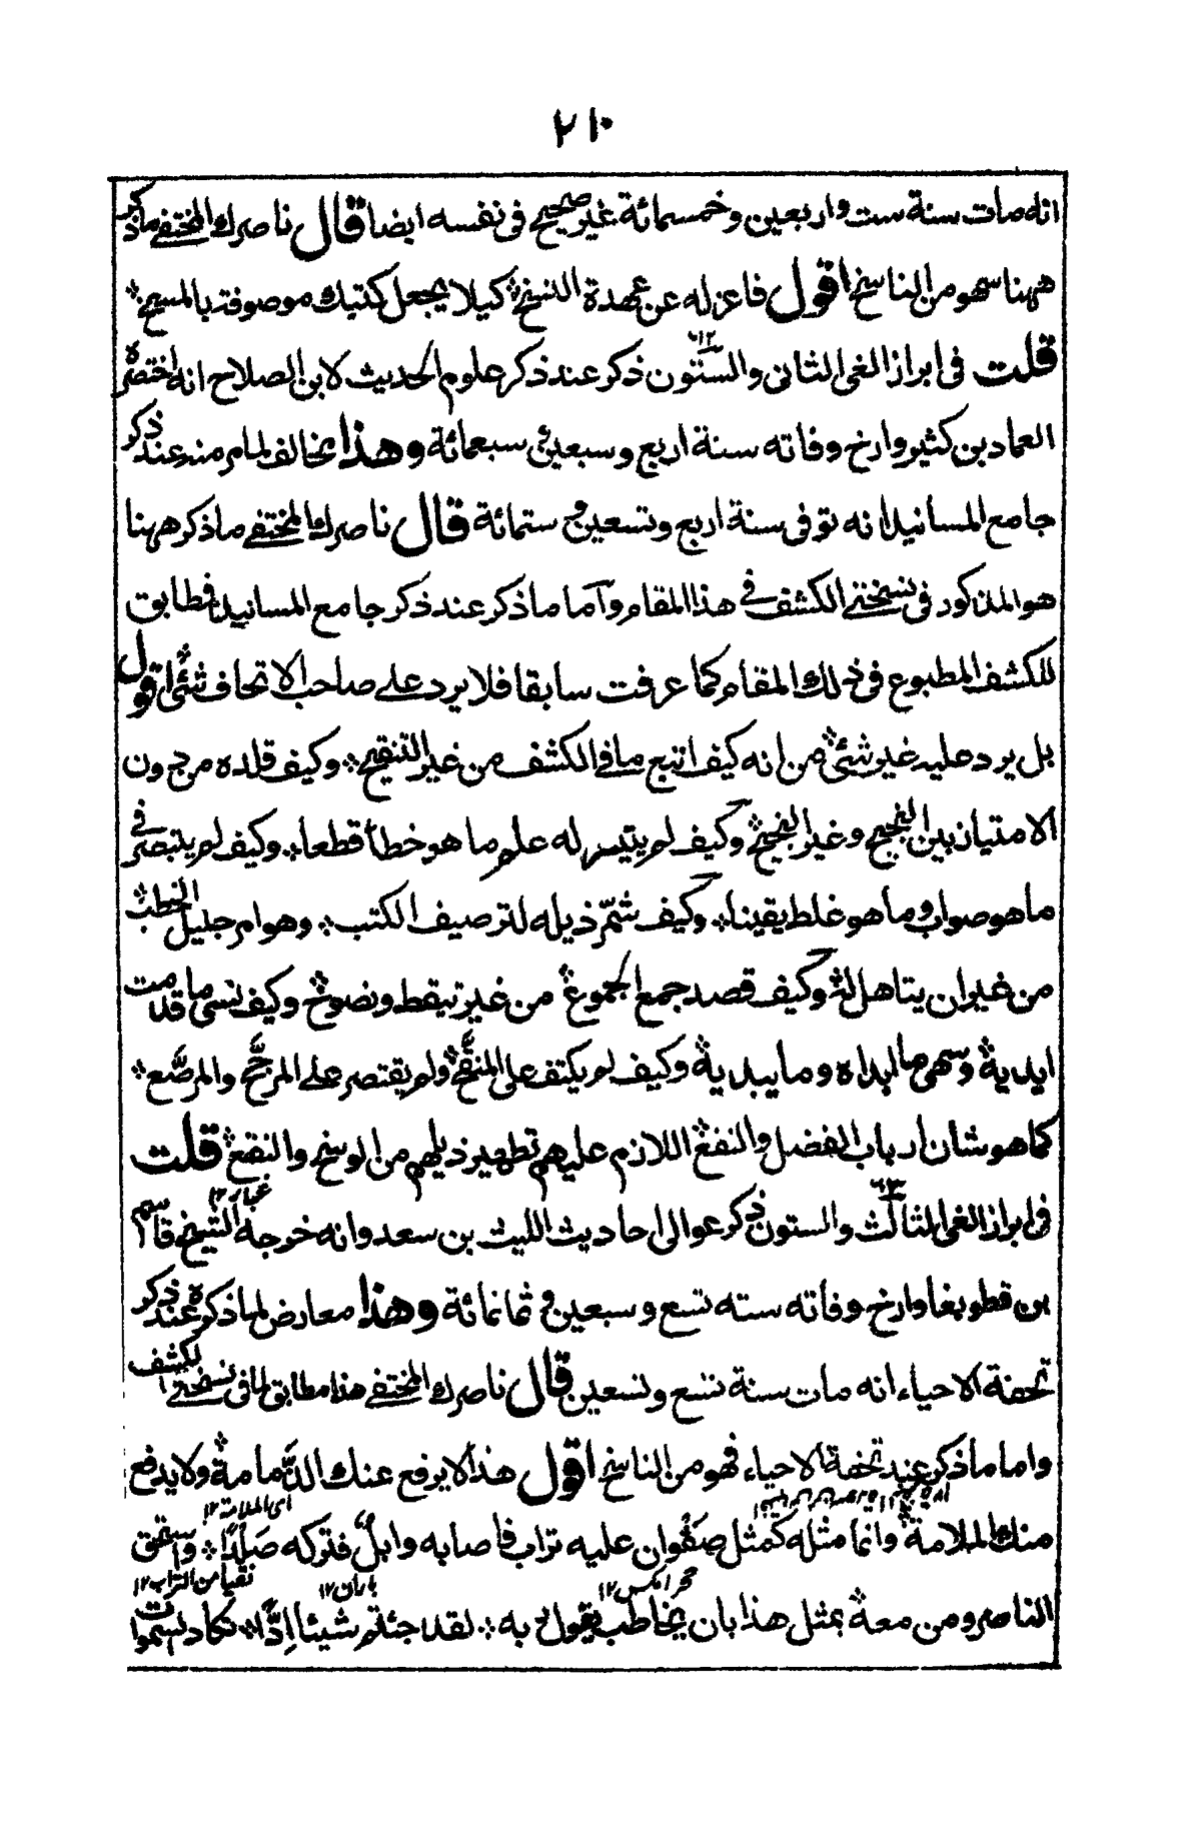 ٢١٠
انه مات سنة ست واربعين وخمسمائة غير صحيح فى نفسه ايضا قال ناصرك المختفى ما ذكر
ههنا سهو من الناسخ اقول فاعزله عن عهدة النسخ كيلا يجعل كتبك موصوفة بالمسخ
قلت فى ابراز الغى الثانى والستون ٦٢ ذكر عند ذكر علوم الحديث لابن الصلاح انه اختصره
العماد بن كثير وارخ وفاته سنة اربع وسبعين وسبعمائة وهذا يخالف لما مر منه عند ذكر
جامع المسانيد انه توفى سنة اربع وتسعين و ستمائة قال ناصرك المختفى ما ذكر ههنا
هو المذكور فى نسختى الكشف فى هذا المقام واما ما ذكر عند ذكر جامع المسانيد فطابق
للكشف المطبوع فى ذلك المقام كما عرفت سابقا فلا يرد على صاحب الاتحاف شئ اقول
بل يرد عليه غير شئ من انه كيف اتبع ما فى الكشف من غير التنقيح وكيف قلده من دون
الامتياز بين النجيح وغير النجيح وكيف لم يتيسر له علم ما هو خطأ قطعا وكيف لم يتبصر فى
ما هو صواب وما هو غلط يقينا وكيف شمّر ذيله لترصيف الكتب وهو امر جليل الخطب
من غير ان يتاهل له وكيف قصد جمع الجموع من غير تيقظ ونضوج وكيف نسى ما قدمت
ايديه وسهى ما ابداه وما يبديه وكيف لم يكتف على المنقّح ولم يقتصر على المرجّح والمرصّع
كما هو شان ارباب الفضل والنفع اللازم عليهم تطهير ذيلهم من الوسخ والنقع غبار١٢ قلت
فى ابراز الغى الثالث والستون ٦٣ ذكر عوالى احاديث الليث بن سعد وانه خرجه الشيخ قاسم
بن قطلوبغا وارخ وفاته سنه تسع وسبعين و ثمانمائة وهذا معارض لما ذكره عند ذكر
تحفة الاحياء انه مات سنة تسع وتسعين قال ناصرك المختفى هذا مطابق لما فى نسختى الكشف
واما ما ذكر عند تحفة الاحياء فهو من الناسخ اقول هذا لا يرفع عنك الذّمامة ولا يدفع
منك الملامة اى الملامة ١٢ وانما مثله كمثل صفوان عليه تراب فاصابه وابل فتركه صلدا واستحق
الناصر ومن معه بمثل هذا بان يخاطب بقول به لقد جئتم شيئا ادّا تكاد السموات
باران١٢ نقيا من التراب١٢